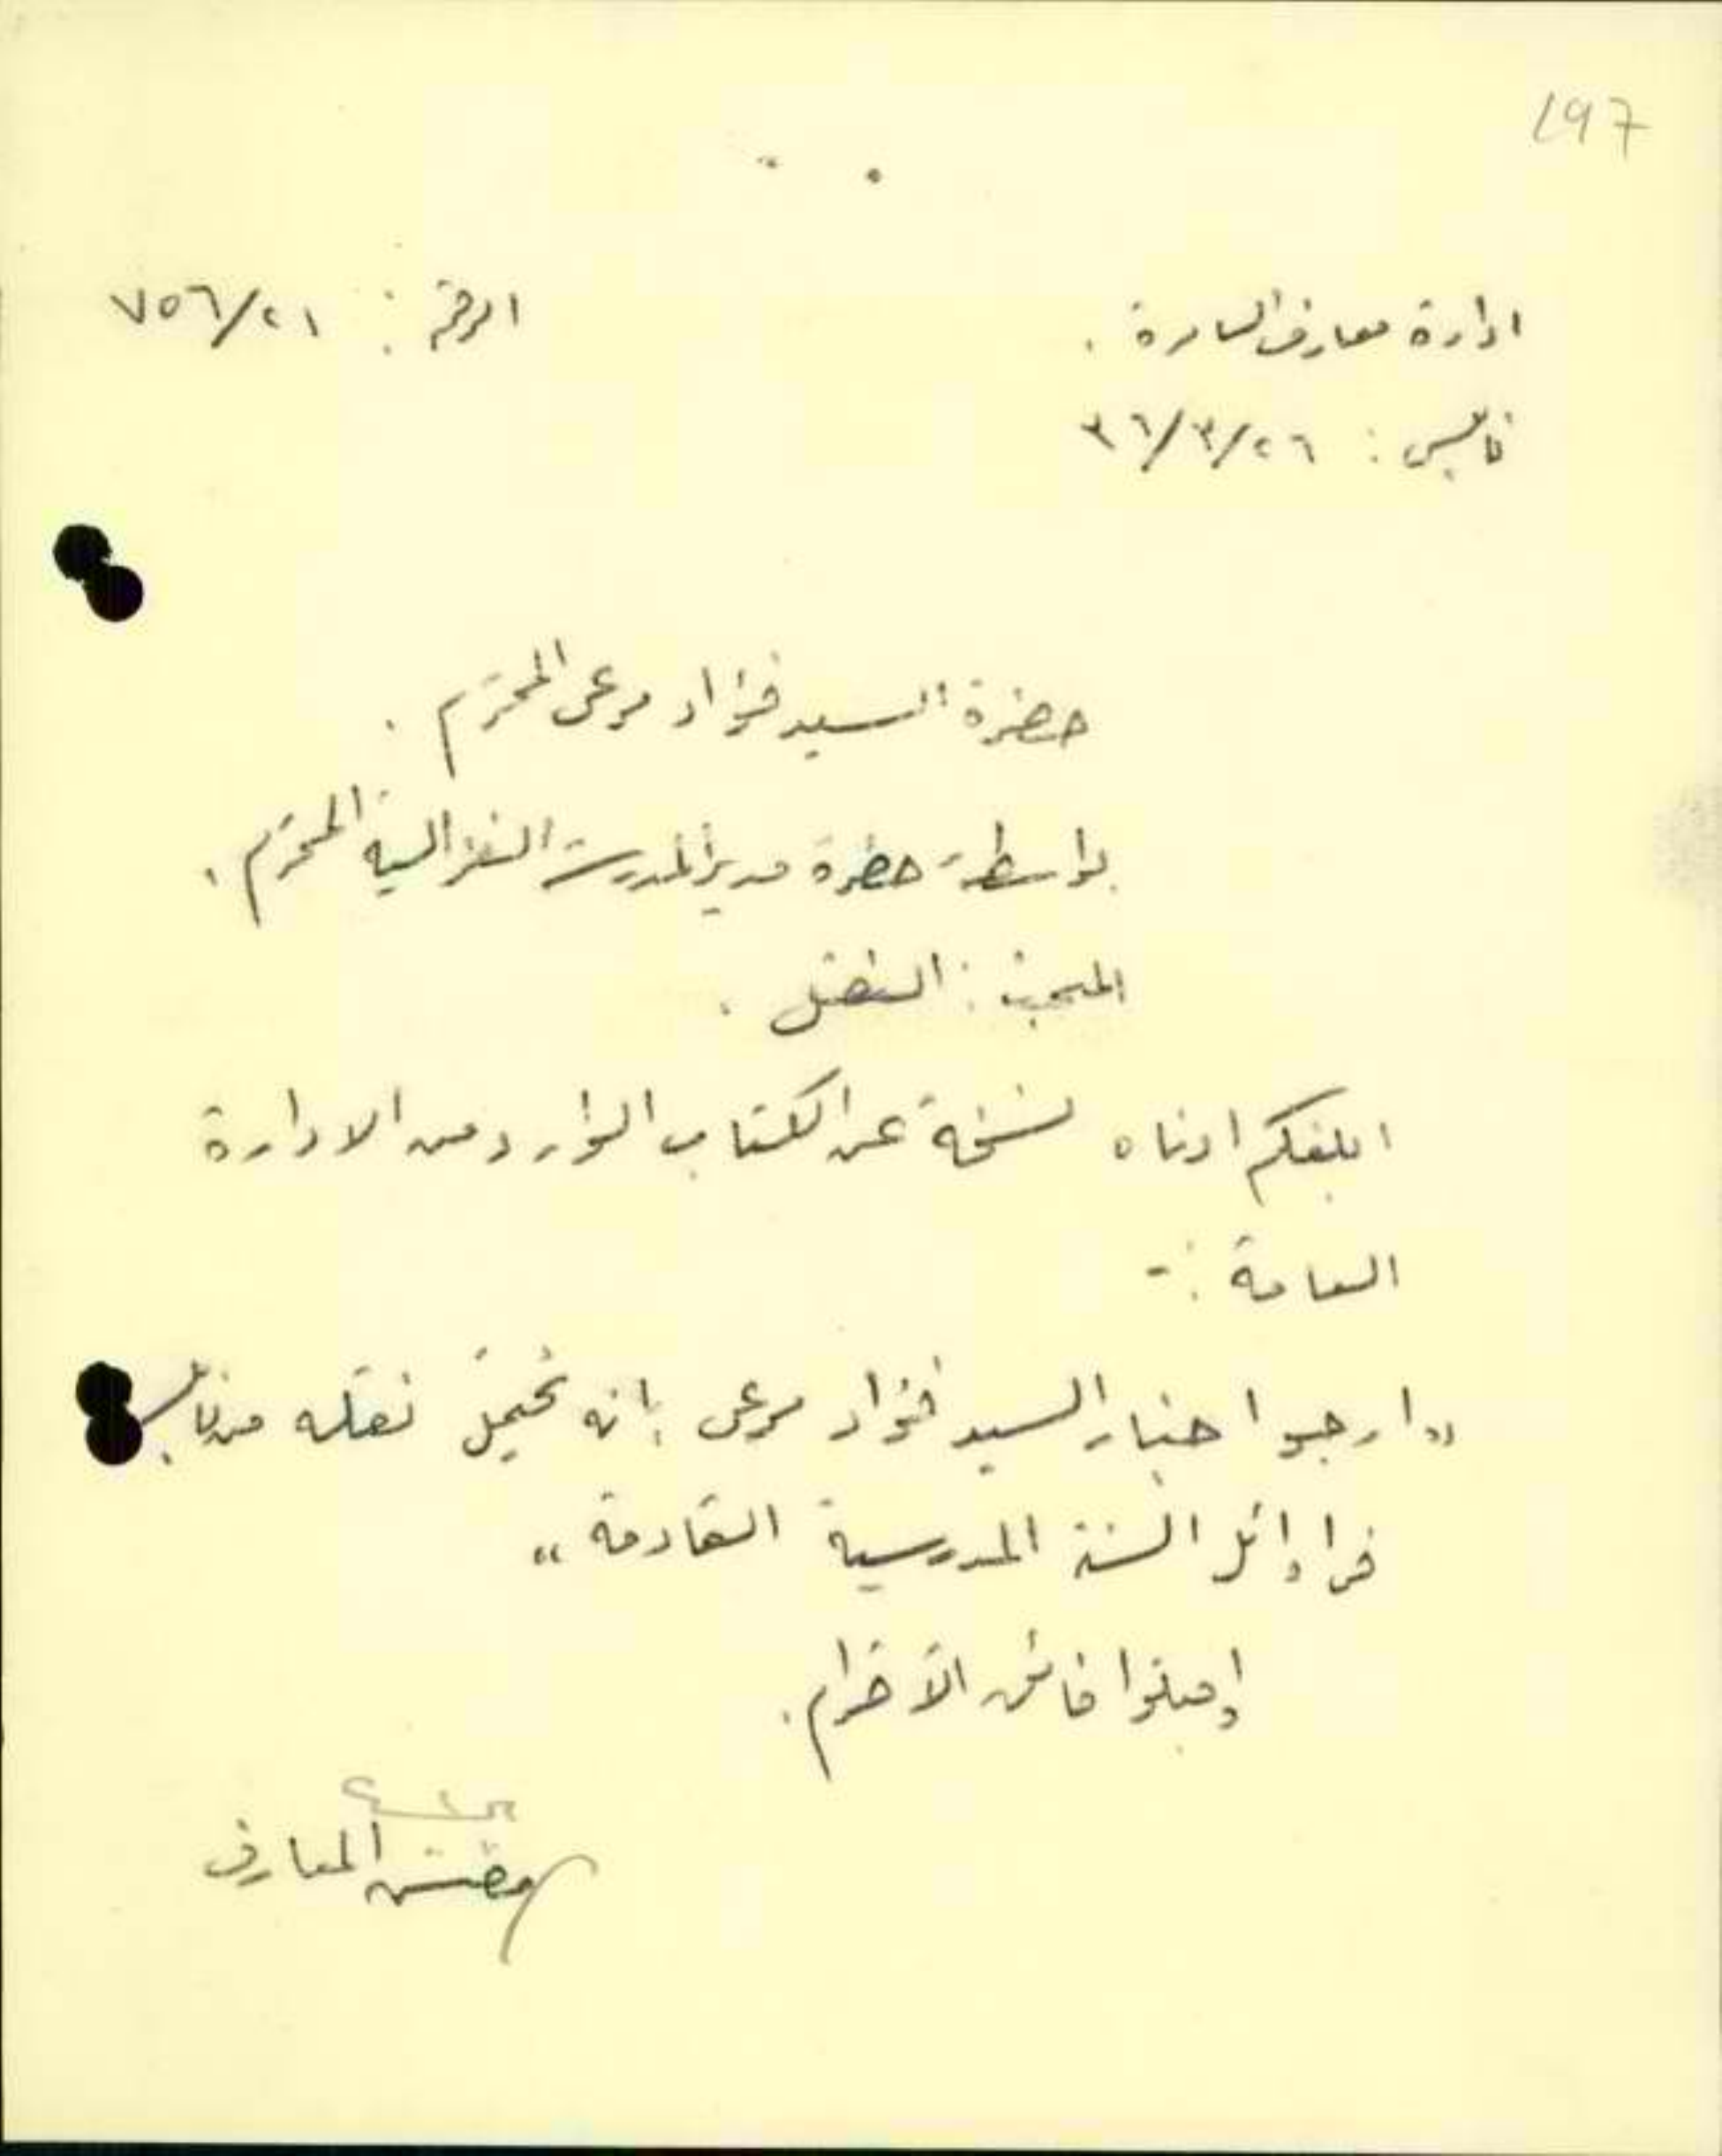 197
ادارة معارف السامرة .
الرقم : ٧٥٦/٢١
نابلس : ٣٦/٣/٢٦
حضرة السيد فؤاد مرعي المحترم .
بواسطة حضرة مدير المدرسة الغزالية المحترم .
المبحث : النقل .
ابلغكم ادناه نسخة عن الكتاب الوارد من الادارة
العامة :-
"ارجو اخبار السيد فؤاد مرعي بانه يحتمل نقله من نابلس
في اوائل السنة المدرسية القادمة"
واقبلوا فائق الاحترام .
مفتش المعارف